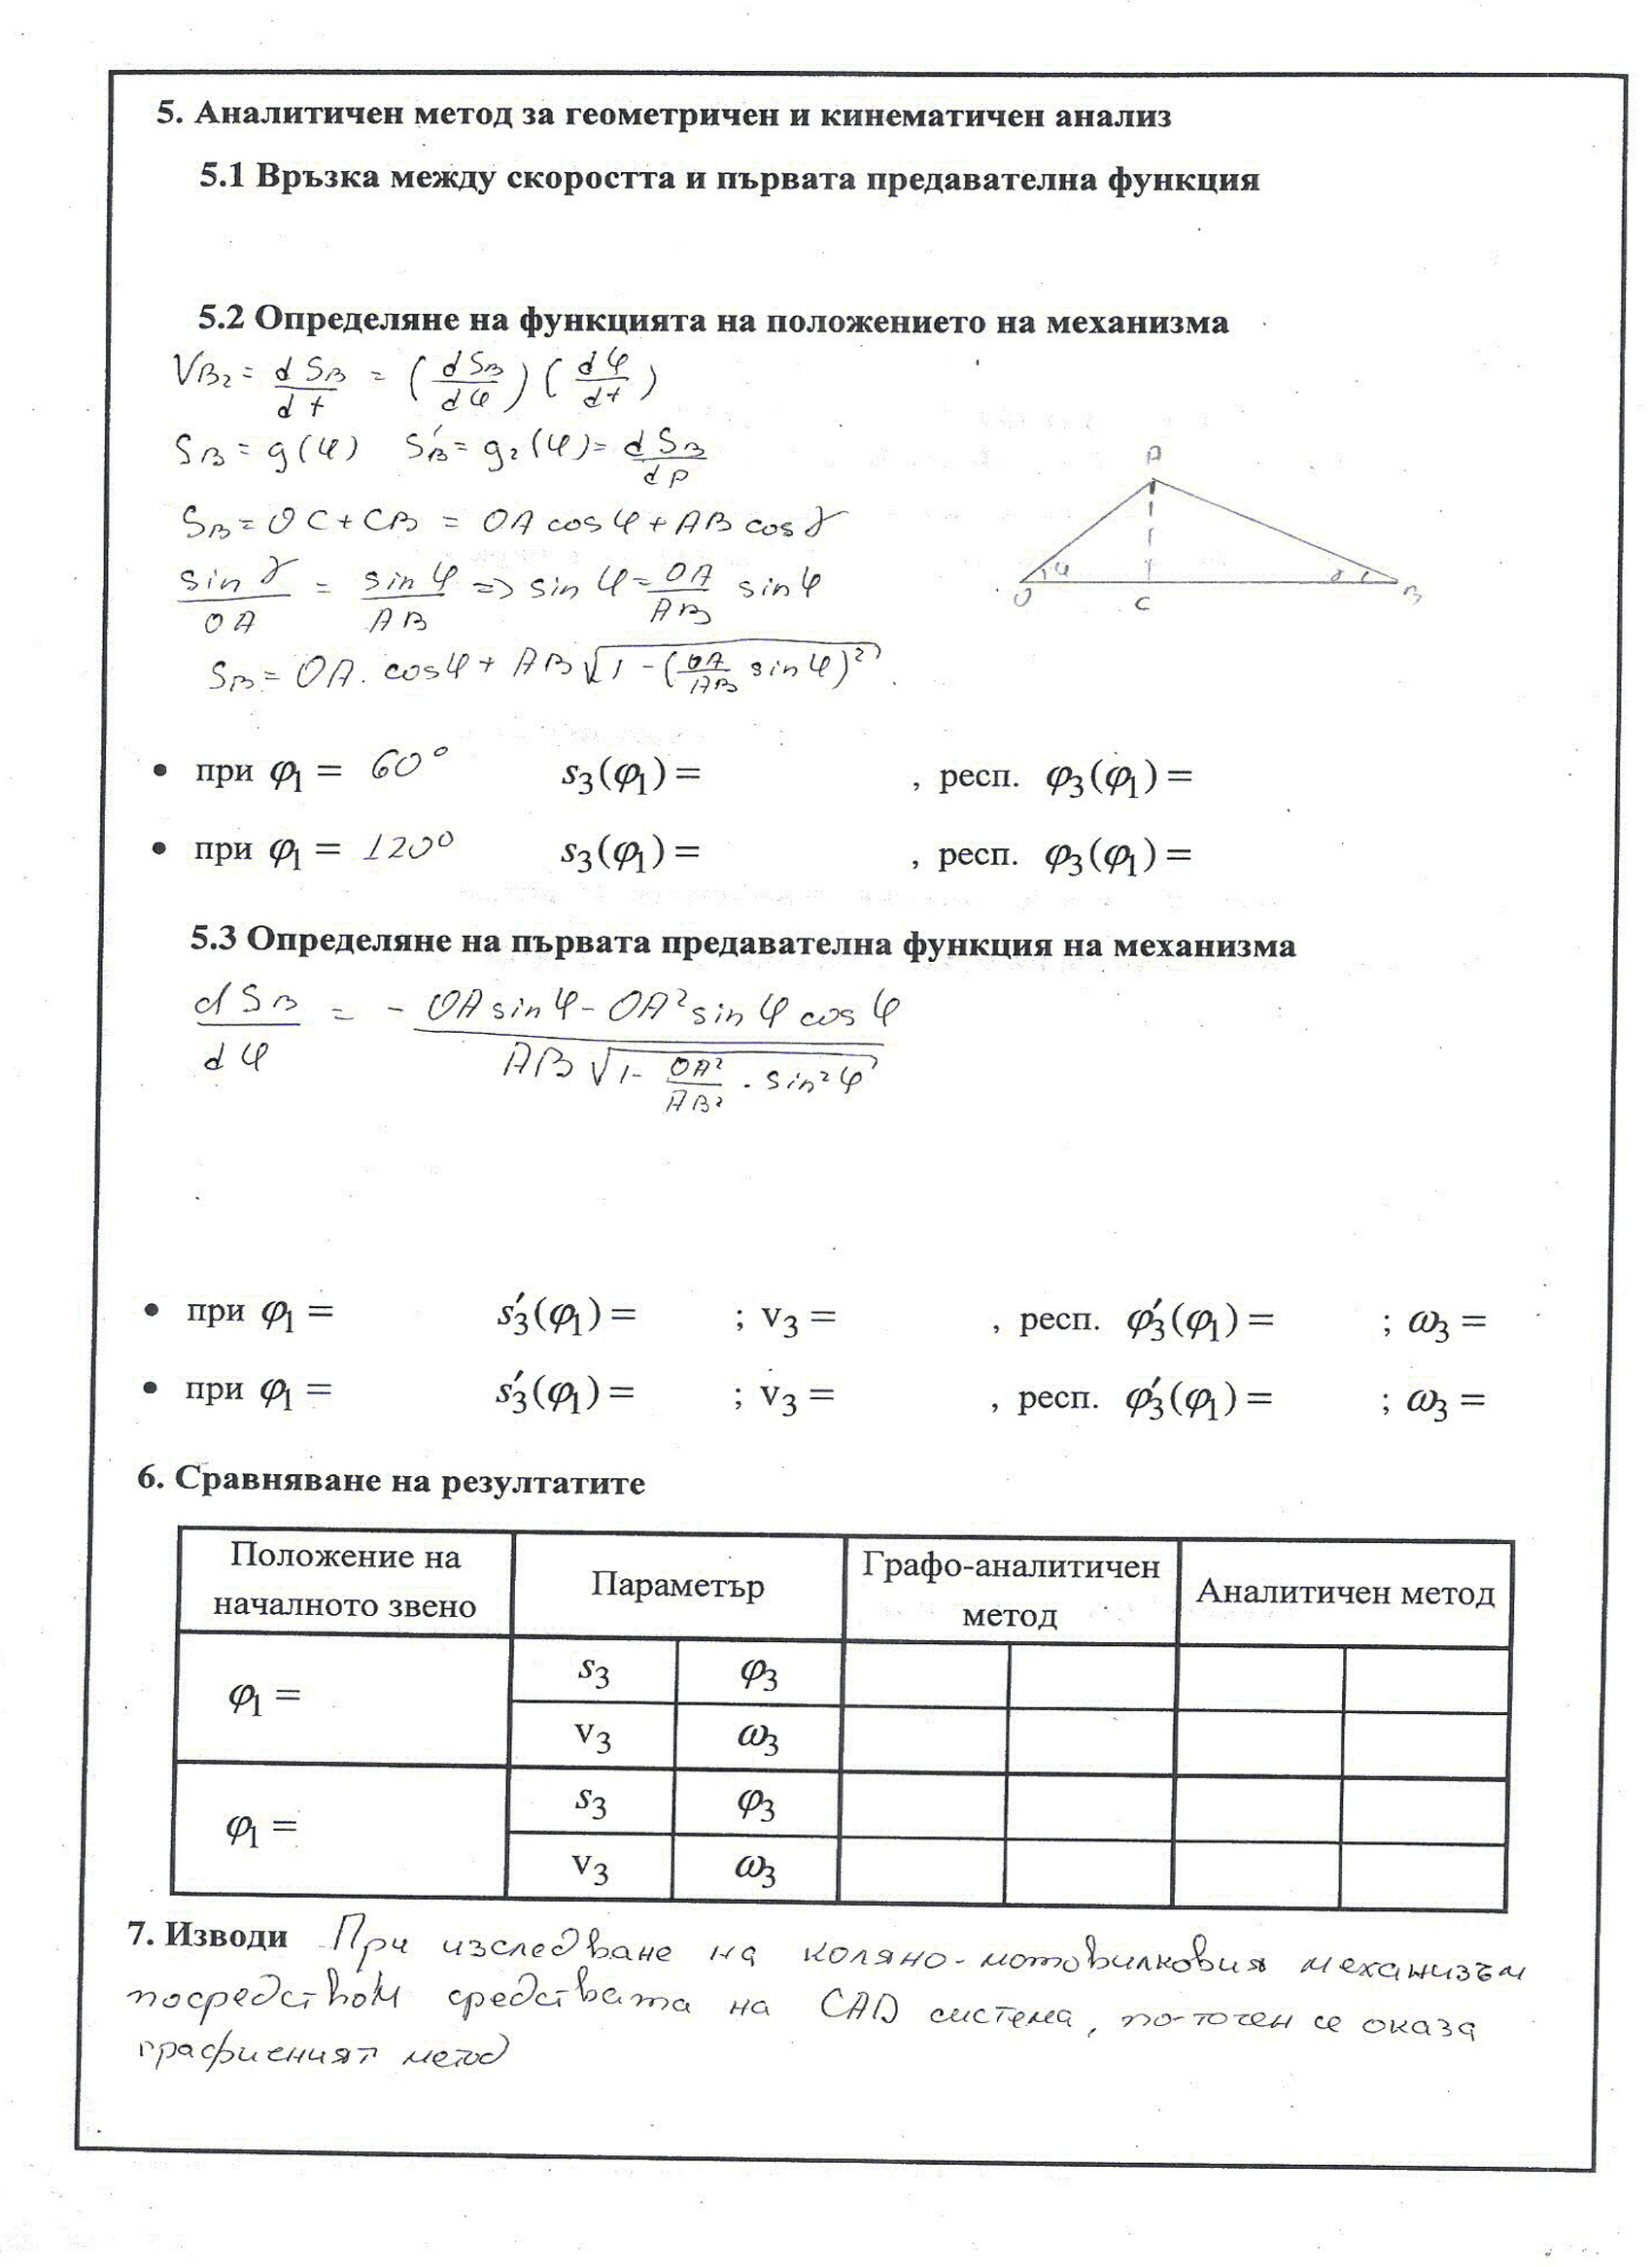 5. Аналитичен метод за геометричен и кинематичен анализ
5.1 Връзка между скоростта и първата предавателна функция
5.2 Определяне на функцията на положението на механизма
VB₂ = dSB/dt = (dSB/dφ)(dφ/dt)
SB = g(φ) S'B = g₂(φ) = dSB/dρ
SB = OC + CB = OA cos φ + AB cos γ
sin γ/OA = sin φ/AB => sin φ = OA/AB sin φ
SB = OA. cos φ + AB √(1 - (OA/AB sin φ)²)
A
φ γ
O C B
• при φ₁ = 60° s₃(φ₁) = , респ. φ₃(φ₁) =
• при φ₁ = 120° s₃(φ₁) = , респ. φ₃(φ₁) =
5.3 Определяне на първата предавателна функция на механизма
dSB/dφ = - (OA sin φ - OA² sin φ cos φ)/(AB √(1 - OA²/AB² . sin² φ))
• при φ₁ = s₃′(φ₁) = ; v₃ = , респ. φ₃′(φ₁) = ; ω₃ =
• при φ₁ = s₃′(φ₁) = ; v₃ = , респ. φ₃′(φ₁) = ; ω₃ =
6. Сравняване на резултатите
Положение на началното звено Параметър Графо-аналитичен метод Аналитичен метод
φ₁ = s₃ φ₃
v₃ ω₃
φ₁ = s₃ φ₃
v₃ ω₃
7. Изводи При изследване на коляно-мотовилковия механизъм
посредством средствата на CAD система, по-точен се оказа
графиеният метод